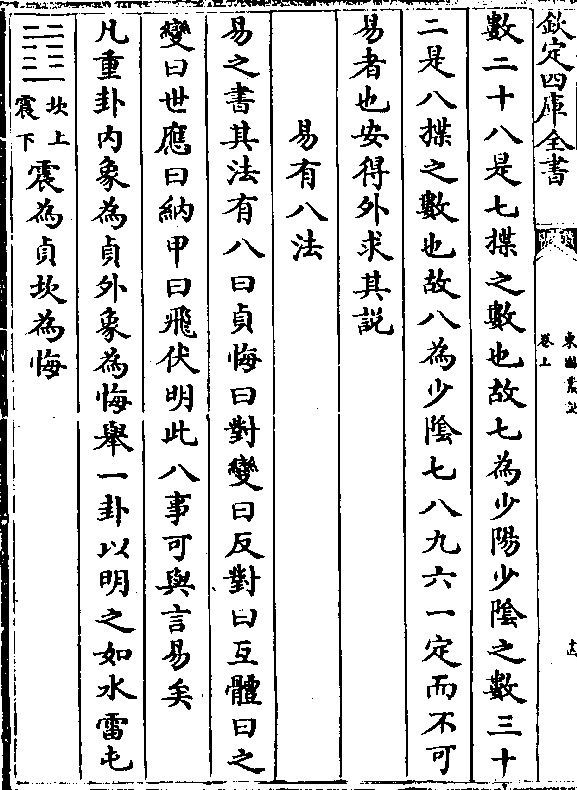 欽定四庫全書
卷上
數二十八是七揲之數也故七為少陽少陰之數三十
二是八揲之數也故八為少陰七八九六一定而不可
易者也安得外求其説
易有八法
易之書其法有八曰貞悔曰對變曰反對曰互體曰之
變曰世應曰納甲曰飛伏明此八事可與言易矣
凡重卦内象為貞外象為悔舉一卦以明之如水雷屯
坎上
震下
震為貞坎為悔